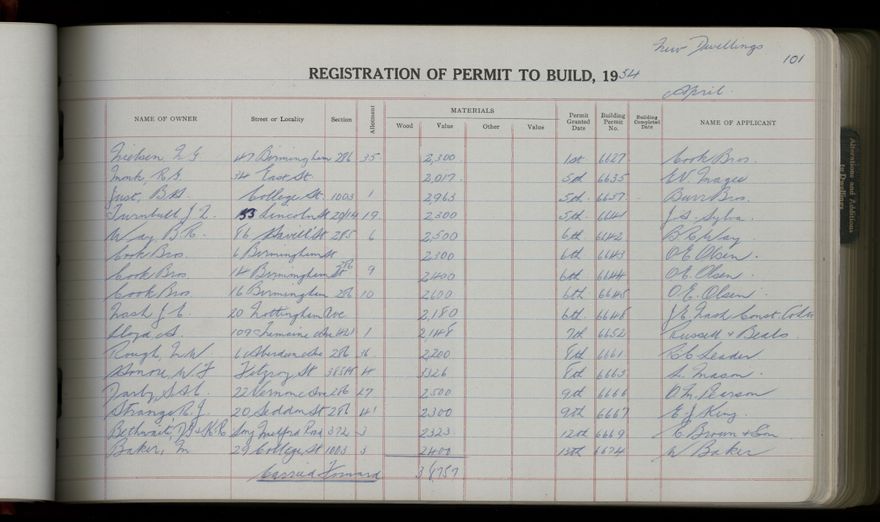 New Dwellings
101
REGISTRATION OF PERMIT TO BUILD, 1954
April
NAME OF OWNER Street or Locality Section Allotment MATERIALS Wood Value Other Value Permit Granted Date Building Permit No. Building Completed Date NAME OF APPLICANT
47 Birmingham 286 35 2,300 1st 6627 Cook Bros.
Monk, R.G. 34 East St. 2,017 5th 6635
Just, B.G. College St. 1003 1 2963 5th 6637 Burr Bros.
Turnbull J. 53 Lincoln St 19 2300 5th 6641 J.S. Sylva
Way B.C. 86 St 285 6 2,500 6th 6642 B C Way
Cook Bros. 6 Birmingham St 2300 6th 6643 O.E. Olsen
Cook Bros 14 Birmingham St 286 9 2400 6th 6644 O.E. Olsen
Cook Bros 16 Birmingham 286 10 2600 6th 6645 O.E. Olsen
Nash J.E. 20 Nottingham Ave 2,180 6th 6648 J.E. Nash Const.
Lloyd A. 109 Tremaine Ave 421 1 2148 7th 6652 Russell & Beals
Rough, N.W. 6 Aberdeen Ave 286 16 2,200 8th 6661 Leader
Fitzroy St 4 8th 6663 Mason
Darby S. 22 Ave 286 27 2500 9th 6666 Pearson
Strange R.J. 20 Seddon St 286 41 2300 9th 6667 E J King
Milford Road 372 3 2323 12th 6669 C Brown & Son
Baker, M 29 College St 1003 3 2400 13th 6674 W Baker
Carried Forward
Alterations and Additions to Dwellings